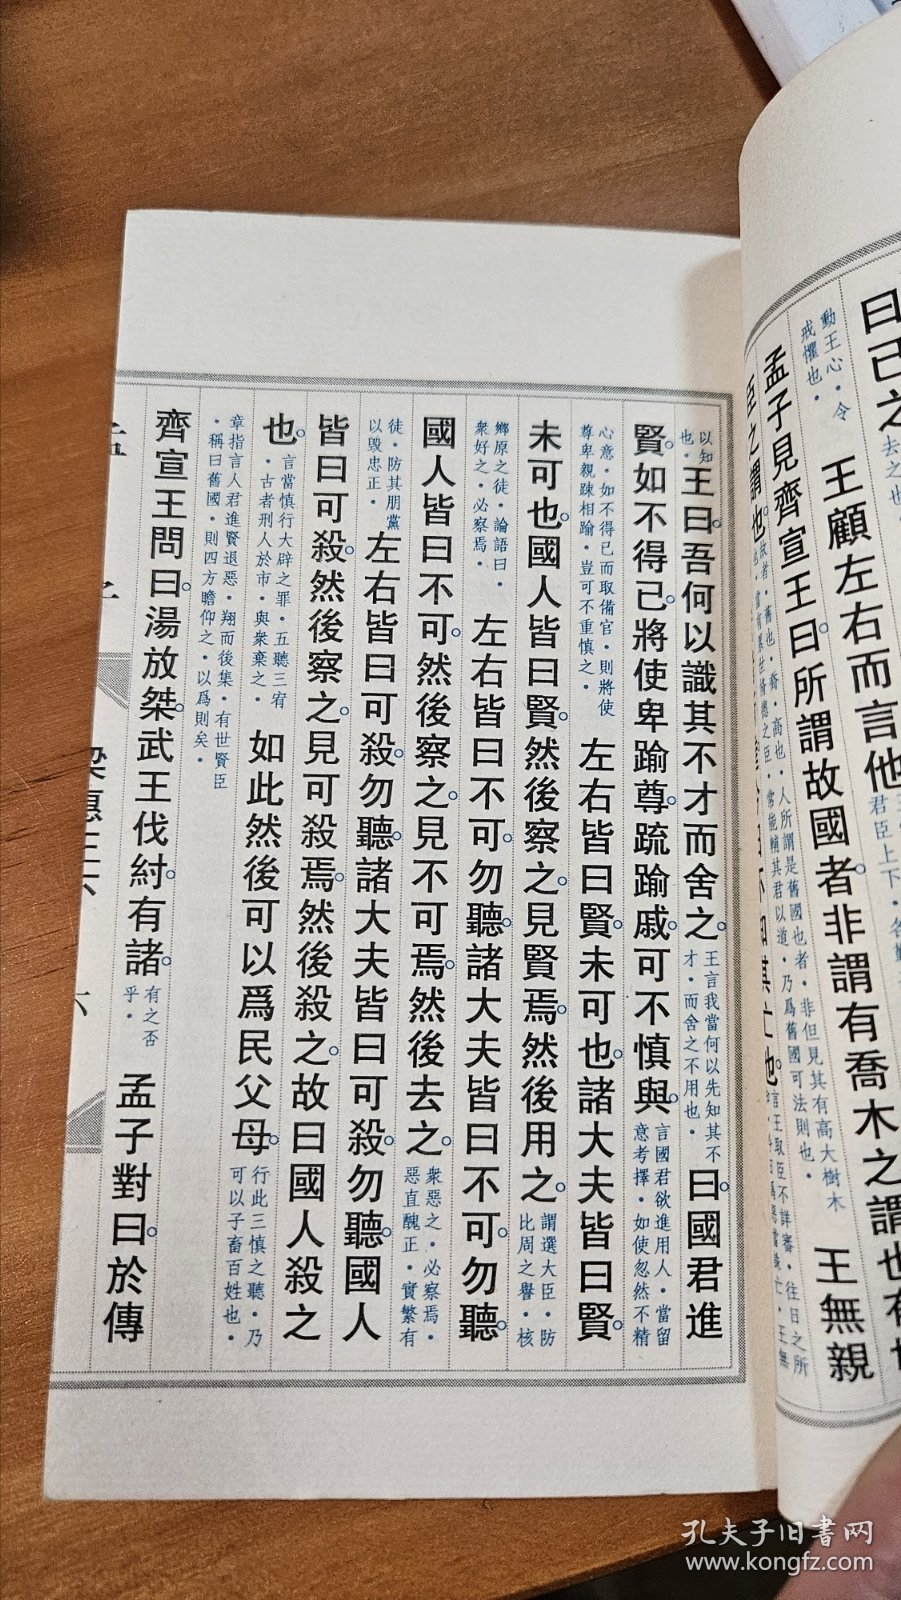 曰己之去之也
動王心。令
戒懼也。
王顧左右而言他
君臣上下。各
孟子見齊宣王。曰。所謂故國者。非謂有喬木之謂也。有
臣之謂也。
故者。舊也。喬。高也。人所謂是舊國也者。非但見其有高大樹木
當有累世修德之臣。常能輔其君以道。乃爲舊國可法則也。
王無親
不知其亡也。
言王取臣不詳審。往日之所
以知
也。
王曰。吾何以識其不才而舍之。
王言我當何以先知其不
才。而舍之不用也。
曰。國君進
賢。如不得已。將使卑踰尊。疏踰戚。可不慎與。
言國君欲進用人。當留
意考擇。如使忽然不精
心意。如不得已而取備官。則將使
尊卑親踈相踰。豈可不重慎之。
左右皆曰賢。未可也。諸大夫皆曰賢。
未可也。國人皆曰賢。然後察之。見賢焉。然後用之。
謂選大臣。防
比周之譽。核
鄉原之徒。論語曰。
衆好之。必察焉。
左右皆曰不可。勿聽。諸大夫皆曰不可。勿聽。
國人皆曰不可。然後察之。見不可焉。然後去之。
衆惡之。必察焉。
惡直醜正。實繁有
徒。防其朋黨
以毁忠正。
左右皆曰可殺。勿聽。諸大夫皆曰可殺。勿聽。國人
皆曰可殺。然後察之。見可殺焉。然後殺之。故曰國人殺之
也。
言當慎行大辟之罪。五聽三宥
。古者刑人於市。與衆棄之。
如此然後可以爲民父母。
行此三慎之聽。乃
可以子畜百姓也。
章指言人君進賢退惡。翔而後集。有世賢臣
。稱曰舊國。則四方瞻仰之。以爲則矣。
齊宣王問曰。湯放桀。武王伐紂。有諸。
有之否
乎。
孟子對曰。於傳
孟子
梁惠王下
六
孔夫子旧書网
www.kongfz.com